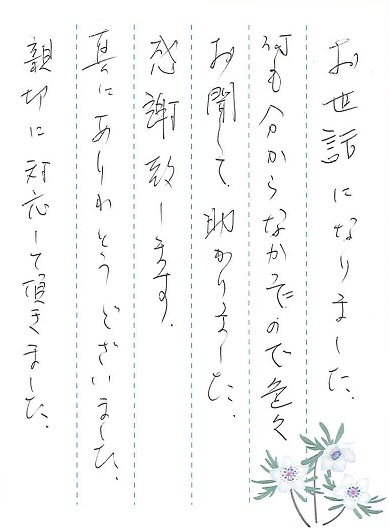 お世話になりました。
何も分からなかったので色々
お聞して、助かりました。
感謝致します。
真にありがとうございました。
親切に対応して頂きました。